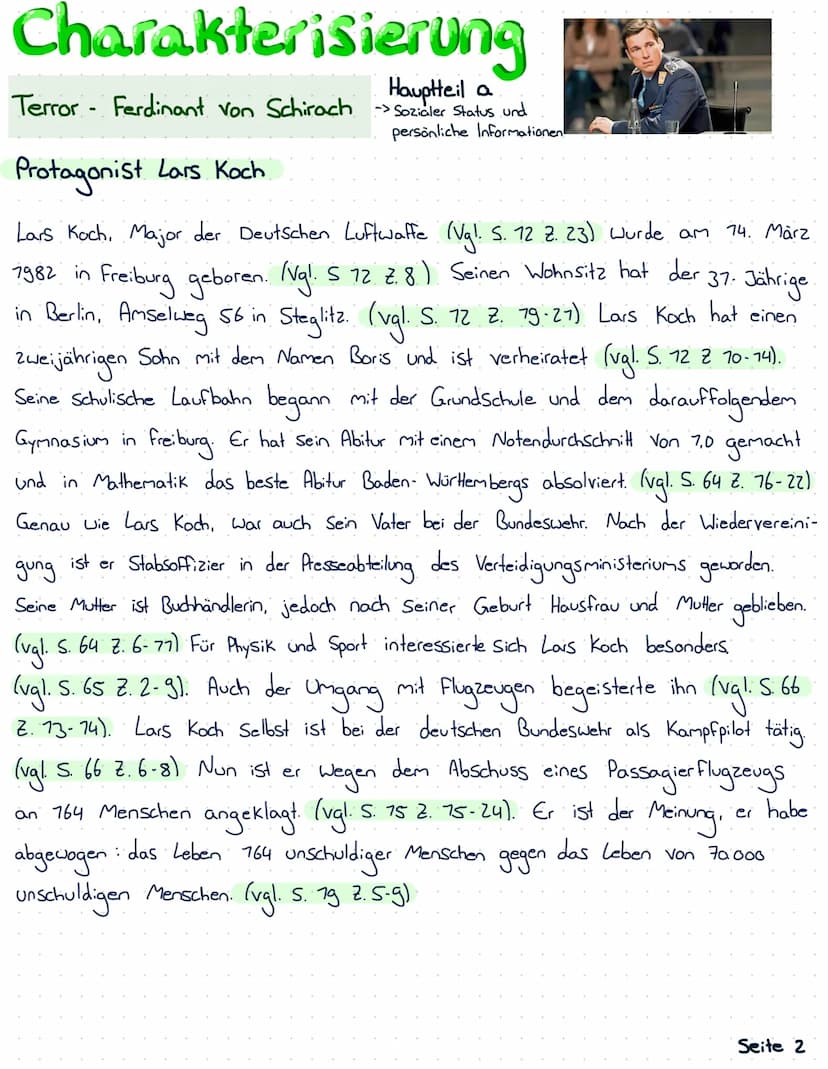 Charakterisierung
Terror - Ferdinant von Schirach
Hauptteil a
-> Sozialer Status und
persönliche Informationen
Protagonist Lars Koch
Lars Koch, Major der Deutschen Luftwaffe (Vgl. S. 12 Z. 23) wurde am 14. März
1982 in Freiburg geboren. (Vgl. S 12 Z. 8) Seinen Wohnsitz hat der 37-Jährige
in Berlin, Amselweg 56 in Steglitz. (vgl. S. 12 Z. 19-21) Lars Koch hat einen
zweijährigen Sohn mit dem Namen Boris und ist verheiratet (vgl. S. 12 Z 10-14).
Seine schulische Laufbahn begann mit der Grundschule und dem darauffolgendem
Gymnasium in Freiburg. Er hat sein Abitur mit einem Notendurchschnitt von 1,0 gemacht
und in Mathematik das beste Abitur Baden-Württembergs absolviert. (vgl. S. 64 Z. 16-22)
Genau wie Lars Koch, war auch sein Vater bei der Bundeswehr. Nach der Wiedervereini-
gung ist er Stabsoffizier in der Presseabteilung des Verteidigungsministeriums geworden.
Seine Mutter ist Buchhändlerin, jedoch nach seiner Geburt Hausfrau und Mutter geblieben.
(vgl. S. 64 Z. 6-11) Für Physik und Sport interessierte sich Lars Koch besonders
(vgl. S. 65 Z. 2-9). Auch der Umgang mit Flugzeugen begeisterte ihn (vgl. S. 66
Z. 13-14). Lars Koch selbst ist bei der deutschen Bundeswehr als Kampfpilot tätig.
(vgl. S. 66 Z. 6-8) Nun ist er wegen dem Abschuss eines Passagierflugzeugs
an 164 Menschen angeklagt. (vgl. S. 15 Z. 15-24). Er ist der Meinung, er habe
abgewogen: das Leben 164 unschuldiger Menschen gegen das Leben von 70.000
unschuldigen Menschen. (vgl. S. 19 Z. 5-9)
Seite 2